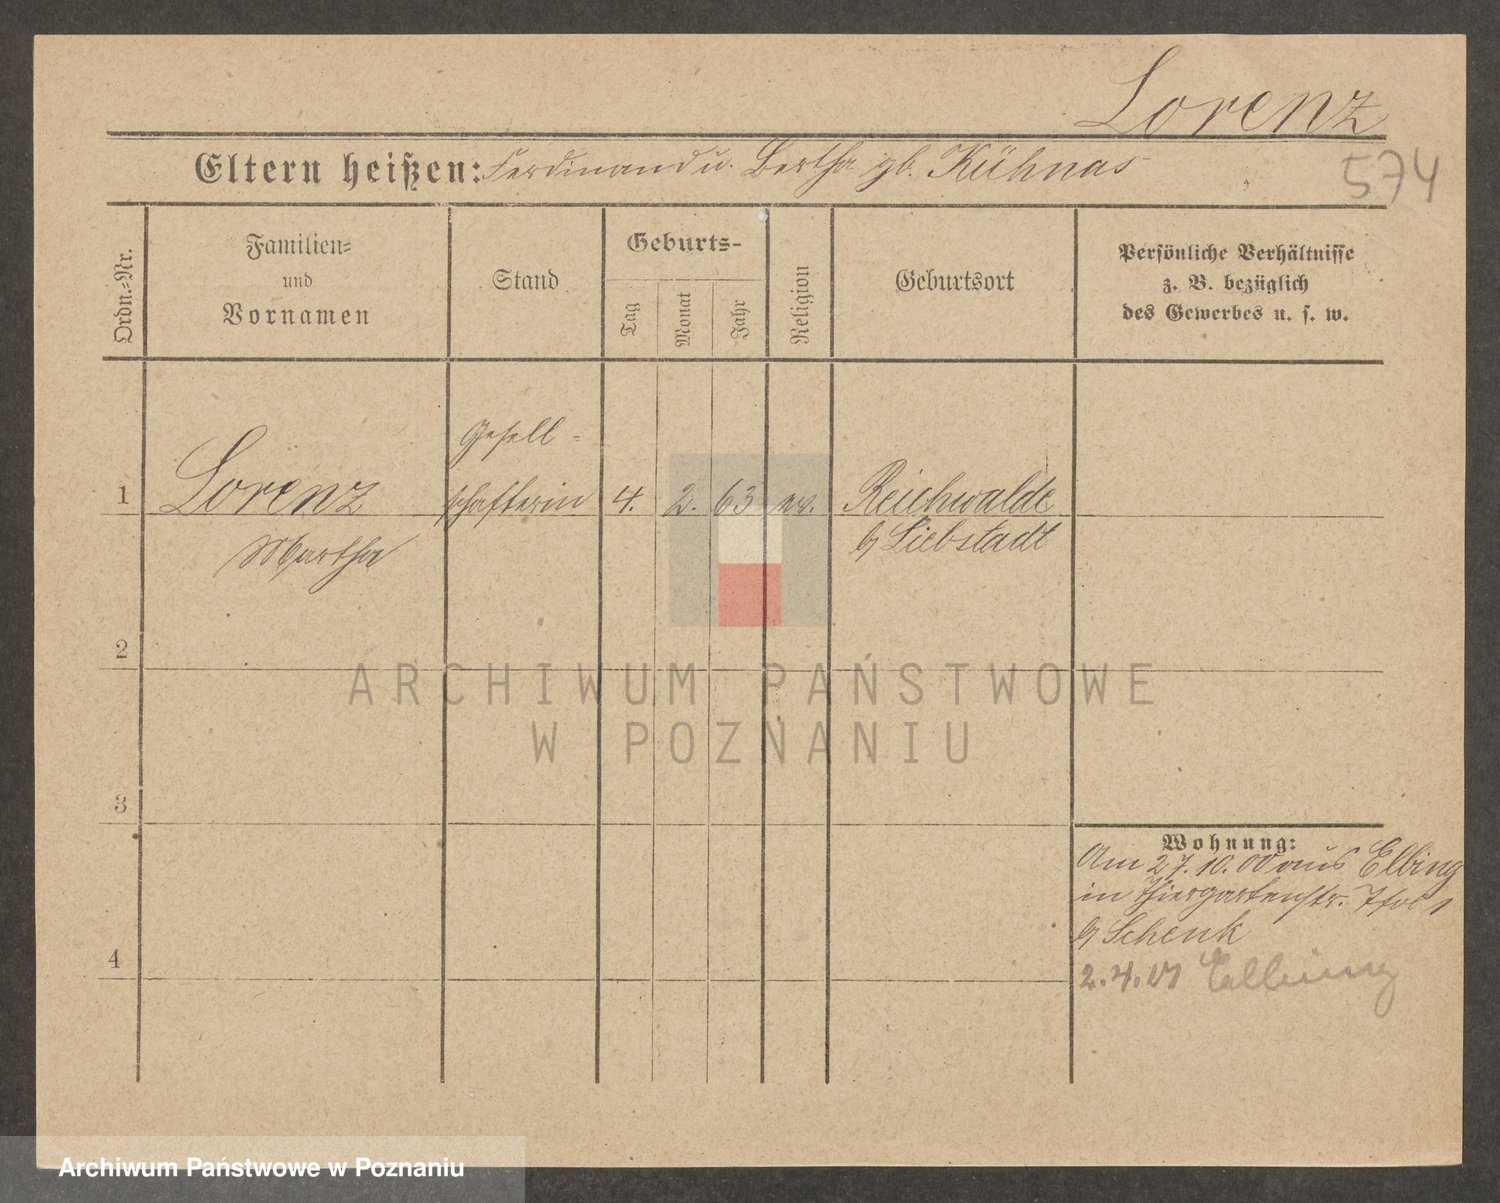 Lorenz
574
Eltern heißen: Ferdinand u. Bertha gb. Kühnas
Ordn.-Nr.
Familien-
und
Vornamen
Stand
Geburts-
Tag
Monat
Jahr
Religion
Geburtsort
Persönliche Verhältnisse
z. B. bezüglich
des Gewerbes u. s. w.
1
Lorenz
Martha
Gesell-
schafterin
4.
2.
63
ev.
Reichwalde
b/ Liebstadt
2
3
4
Wohnung:
Am 27.10.00 aus Elbing
in Thiergartenstr.
b/ Schenk
2.4.01 Elbing
ARCHIWUM PAŃSTWOWE
W POZNANIU
Archiwum Państwowe w Poznaniu